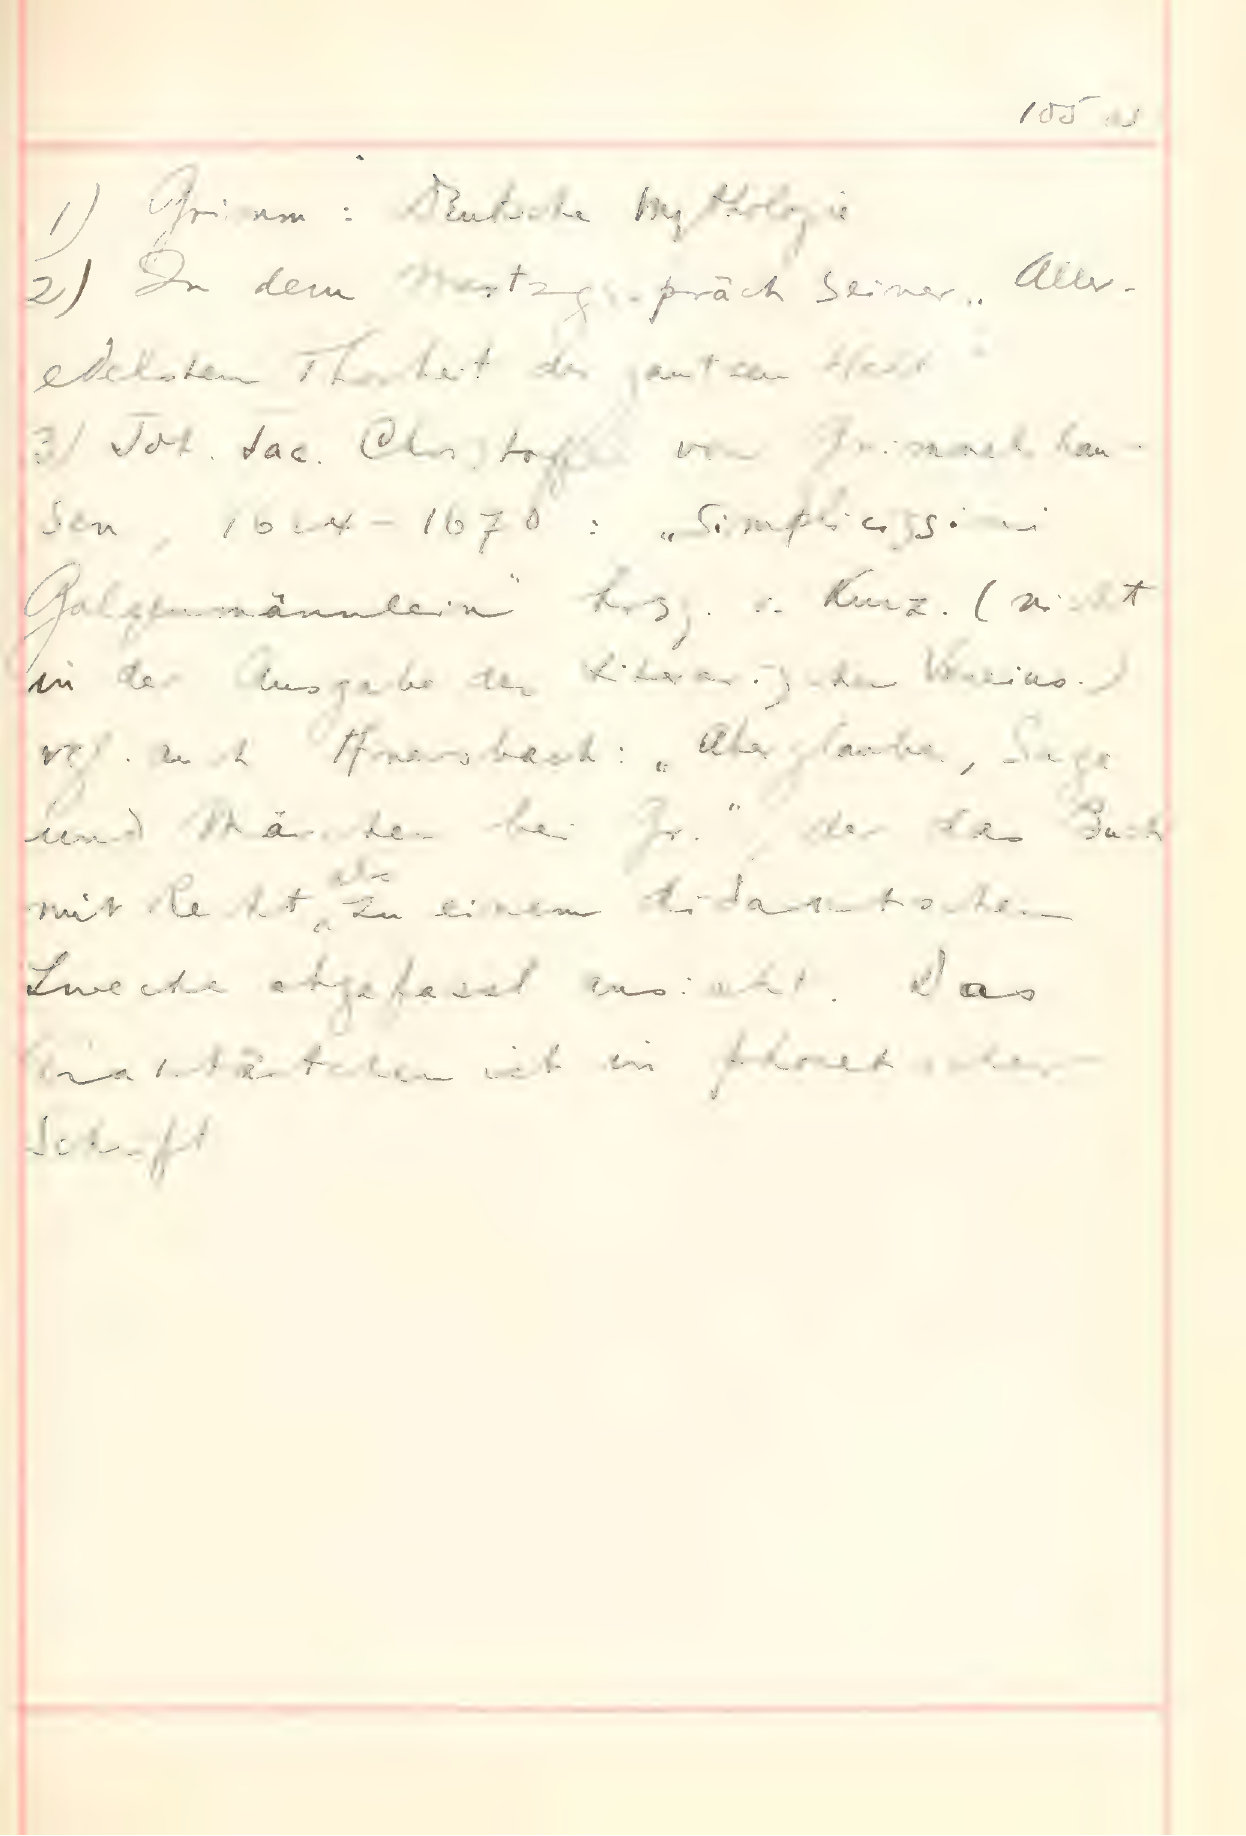 105
1) Grimm : Deutsche Mythologie
2) In dem seiner „ Aller-
edelsten Thorheit der gantzen Welt "
3) Joh. Jac. Christoffel von Grimmelshau-
sen , 1624 - 1676 : „Simplicissimi
Galgenmännlein" hrsg. v. Kurz. ( nicht
in der Ausgabe des Literarischen Vereins. )
vgl. auch Amersbach : „ Aberglaube, Sage
und Märchen bei Gr." , der das Buch
mit Recht als zu einem didaktischen
Zwecke abgefasst ansieht. Das
Traktätchen ist in
Schrift